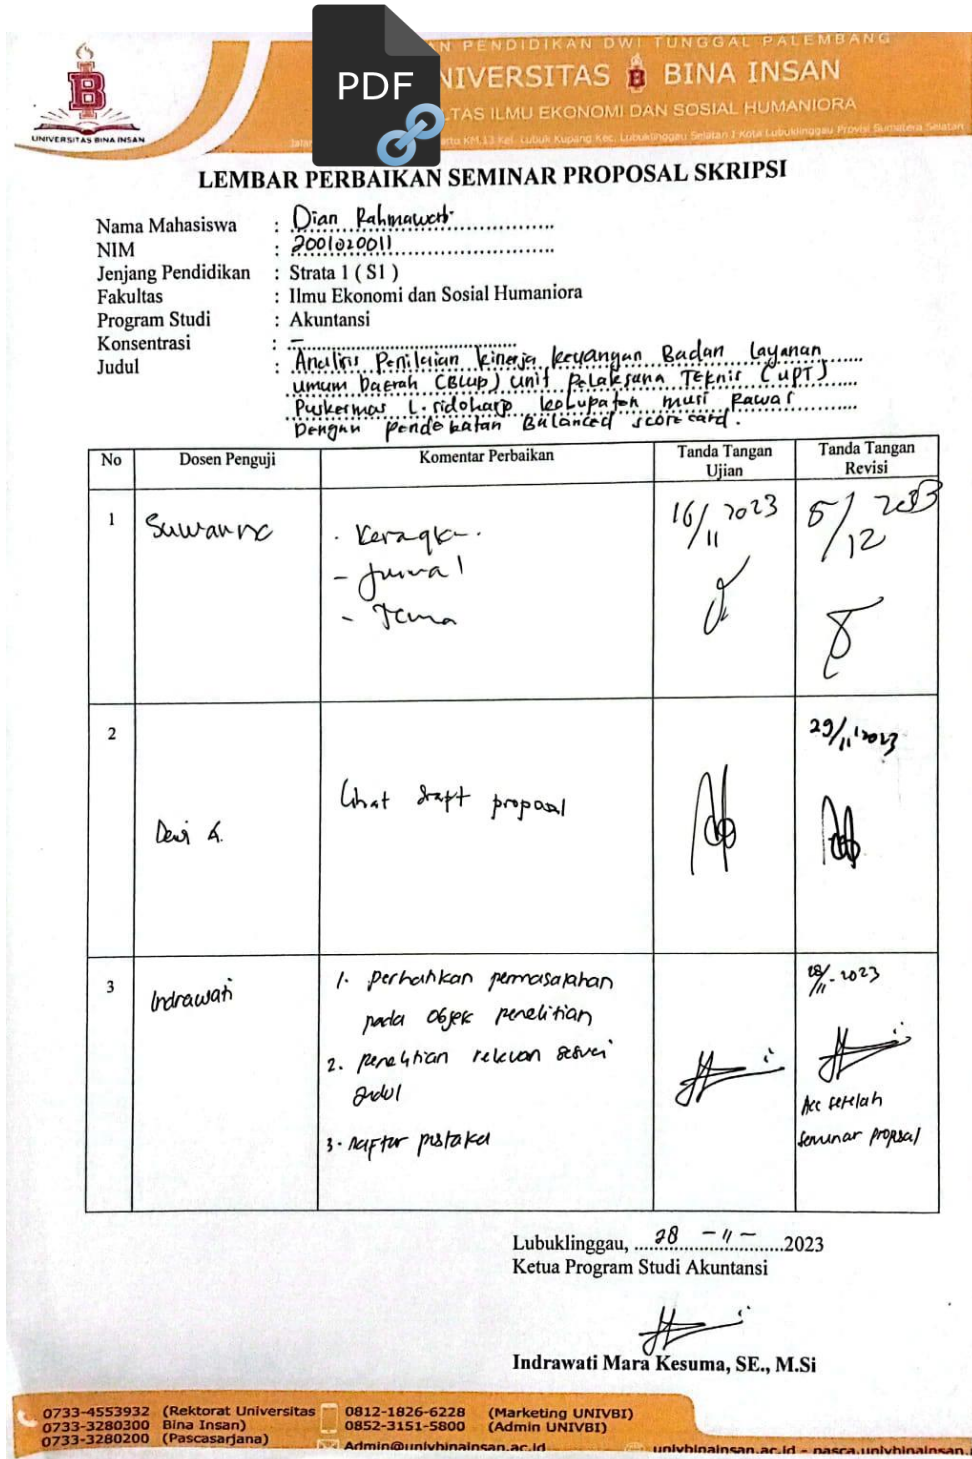 PDF
AN PENDIDIKAN DWI TUNGGAL PALEMBANG
NIVERSITAS BINA INSAN
LTAS ILMU EKONOMI DAN SOSIAL HUMANIORA
KM.13 Kel. Lubuk Kupang Kec. Lubuklinggau Selatan I Kota Lubuklinggau Provinsi Sumatera Selatan
UNIVERSITAS BINA INSAN
LEMBAR PERBAIKAN SEMINAR PROPOSAL SKRIPSI
Nama Mahasiswa : Dian Rahmawati
NIM : 2001020011
Jenjang Pendidikan : Strata 1 ( S1 )
Fakultas : Ilmu Ekonomi dan Sosial Humaniora
Program Studi : Akuntansi
Konsentrasi : -
Judul : Analisis Penilaian kinerja keuangan Badan layanan
umum Daerah (BLUD) Unit Pelaksana Teknis (UPT)
Puskesmas L. sidoharjo kabupaten musi Rawas
Dengan pendekatan Balanced scorecard.
No Dosen Penguji Komentar Perbaikan Tanda Tangan Ujian Tanda Tangan Revisi
1 Suwarno
. Kerangka.
- Jurnal
- Tema
16/11 2023
5/12 2023
2
29/11 2023
Lihat draft proposal
Dewi A.
3 Indrawati
1. perhatikan permasalahan
pada objek penelitian
2. penelitian relevan sesuai
judul
3. Daftar pustaka
28/11-2023
Acc setelah
seminar proposal
Lubuklinggau, 28 - 11 - 2023
Ketua Program Studi Akuntansi
Indrawati Mara Kesuma, SE., M.Si
0733-4553932 (Rektorat Universitas
0733-3280300 Bina Insan)
0733-3280200 (Pascasarjana)
0812-1826-6228 (Marketing UNIVBI)
0852-3151-5800 (Admin UNIVBI)
Admin@univbinainsan.ac.id
univbinainsan.ac.id - pasca.univbinainsan.